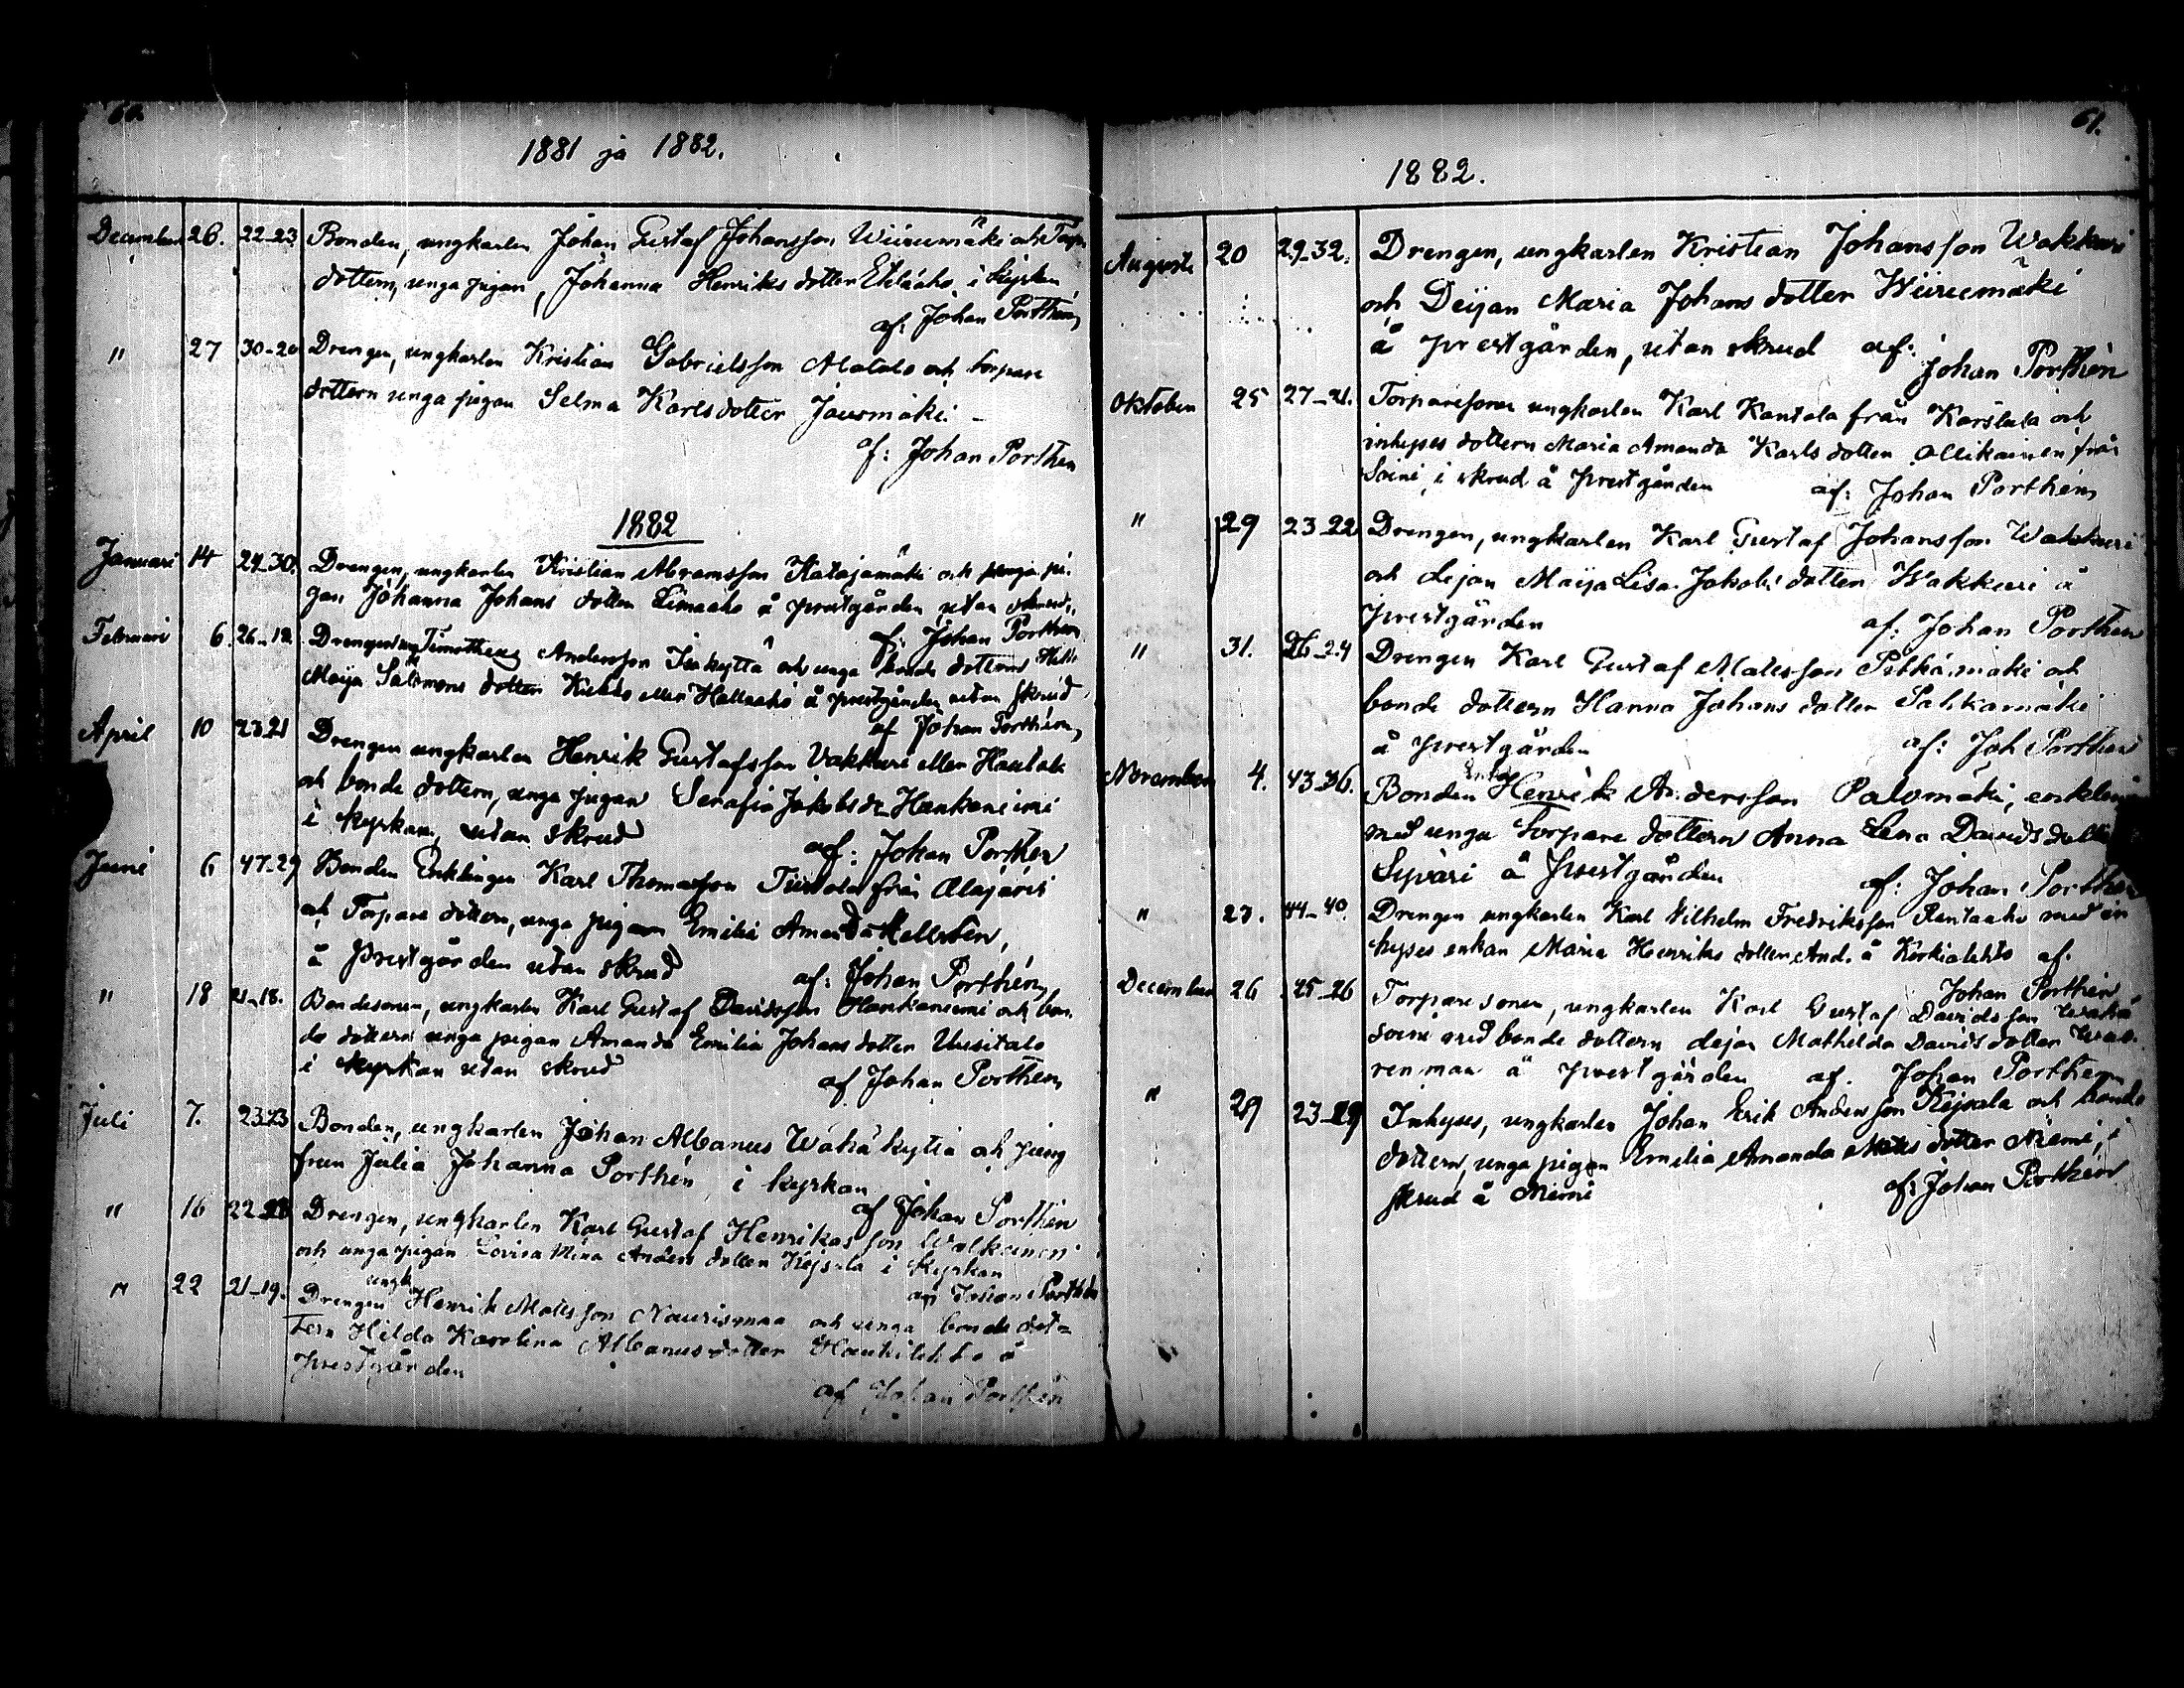 60.
1881 ja 1882.
December 26. 22-23 Bonden, ungkarlen Johan Gustaf Johansson Wiiurumäki och Torp.
dottern, unga pigan, Johanna Henriks dotter Eteläaho i kyrkan
af: Johan Porthén
" 27 30-20 Drengen, ungkarlen Kristian Gabrielsson Alatalo och torpare
dottern unga pigan Selma Karlsdotter Jausmäki -
af: Johan Porthén
1882
Januari 14 29-30. Drengen, ungkarlen Kristian Abramsson Katajamäki och unga pi-
gan Johanna Johans dotter Limaaho å prestgården utan skrud,
af: Johan Porthen
Februari 6. 26-19. Drengen ung Timotheus Andersson Isokyttä och unga bonde dottern
Maija Salomons dotter eller Hallaaho å prestgården utan skrud
af Johan Porthén
April 10 23 21 Drengen ungkarlen Henrik Gustafsson Vakkuri eller Hautala
och bonde dottern, unga pigan Serafia Jakobs dr Hankaniemi
i kyrkan, utan skrud
af: Johan Porthén
Juni 6 47-29 Bonden Enklingen Karl Thomasson Tustola från Alajärvi
och Torpare dottern, unga pigan Emilia Amanda Hellstén,
å Prestgården utan skrud
af: Johan Porthén
" 18 21-18. Bondesonen, ungkarlen Karl Gustaf Davidsson Hankaniemi och bon-
de dottern unga pigan Amanda Emilia Johans dotter Uusitalo
i kyrkan utan skrud
af Johan Porthen
Juli 7. 23 23 Bonden, ungkarlen Johan Albanus Wähäkytiä och jung
frun Julia Johanna Porthén i kyrkan
af Johan Porthén
" 16 22 Drengen, ungkarlen Karl Gustaf Henriksson Walkeinen
och unga pigan Lovisa Mina Anders dotter Keisala i kyrkan
af Johan Porthén
" 22 21-19. Drengen ungk Henrik Matsson Naurismaa och unga bonde dot-
tern Hilda Karolina Albanus dotter Haukilehto å
prestgården
af Johan Porthén
61.
1882.
Augusti 20 29-32. Drengen, ungkarlen Kristian Johansson Wakkuri
och Deijan Maria Johans dotter Wiirumäki
å prestgården, utan skrud af:
Johan Porthén
Oktober 25 27-21. Torparesonen ungkarlen Karl Kantola från Karstula och
inhyses dottern Maria Amanda Karls dotter Ollikainen från
Soini, i skrud å prestgården af: Johan Porthén
" 29 23-22 Drengen, ungkarlen Karl Gustaf Johansson Wakkuri
och dejan Maija Lisa Jakobs dotter Wakkuri å
prestgården af: Johan Porthén
" 31. 26-24 Drengen Karl Gustaf Matsson Petkämäki och
bonde dottern Hanna Johans dotter Pahkamäki
å prestgården af: Joh Porthén
November 4. 43-36. Bonden Henrik Andersson Palomäki, enkling
med unga torpare dottern Anna Lena Davids dotter
Syväri å Prestgården af: Johan Porthén
" 27. 44-40. Drengen ungkarlen Karl Wilhelm Fredriksson Rantaaho med in
hyses enkan Maria Henriks dotter And. å Korkialehto af.
Johan Porthén
December 26 25-26 Torpare sonen, ungkarlen Karl Gustaf Davidsson Wähä
soini med bonde dottern dejan Mathilda Davids dotter Waa-
renmaa å prestgården af. Johan Porthen
" 29 23-29 Inhyses, ungkarlen Johan Erik Andersson Keisala och bonde
dottern, unga pigan Emilia Amanda Mats dotter Niemi, i
skrud å Niemi af: Johan Porthén